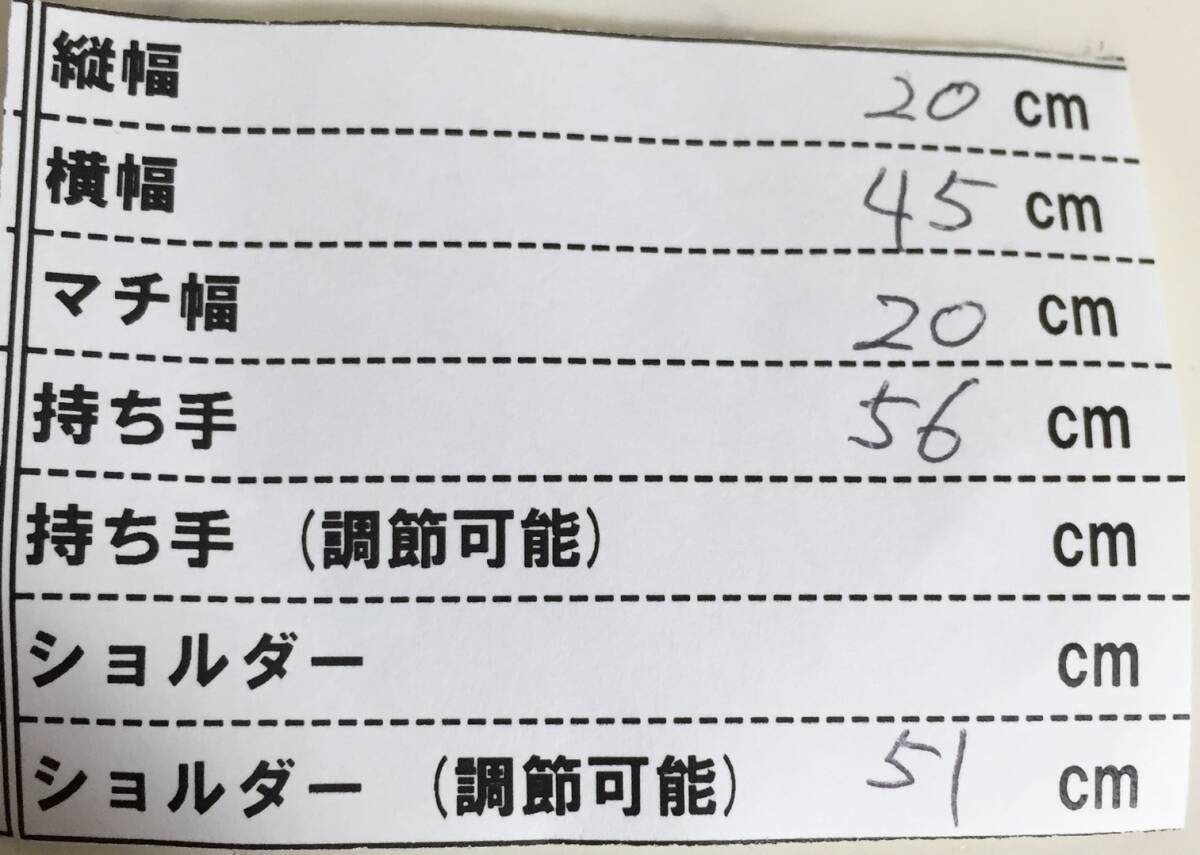 縦幅 20 cm
横幅 45 cm
マチ幅 20 cm
持ち手 56 cm
持ち手 (調節可能) cm
ショルダー cm
ショルダー (調節可能) 51 cm